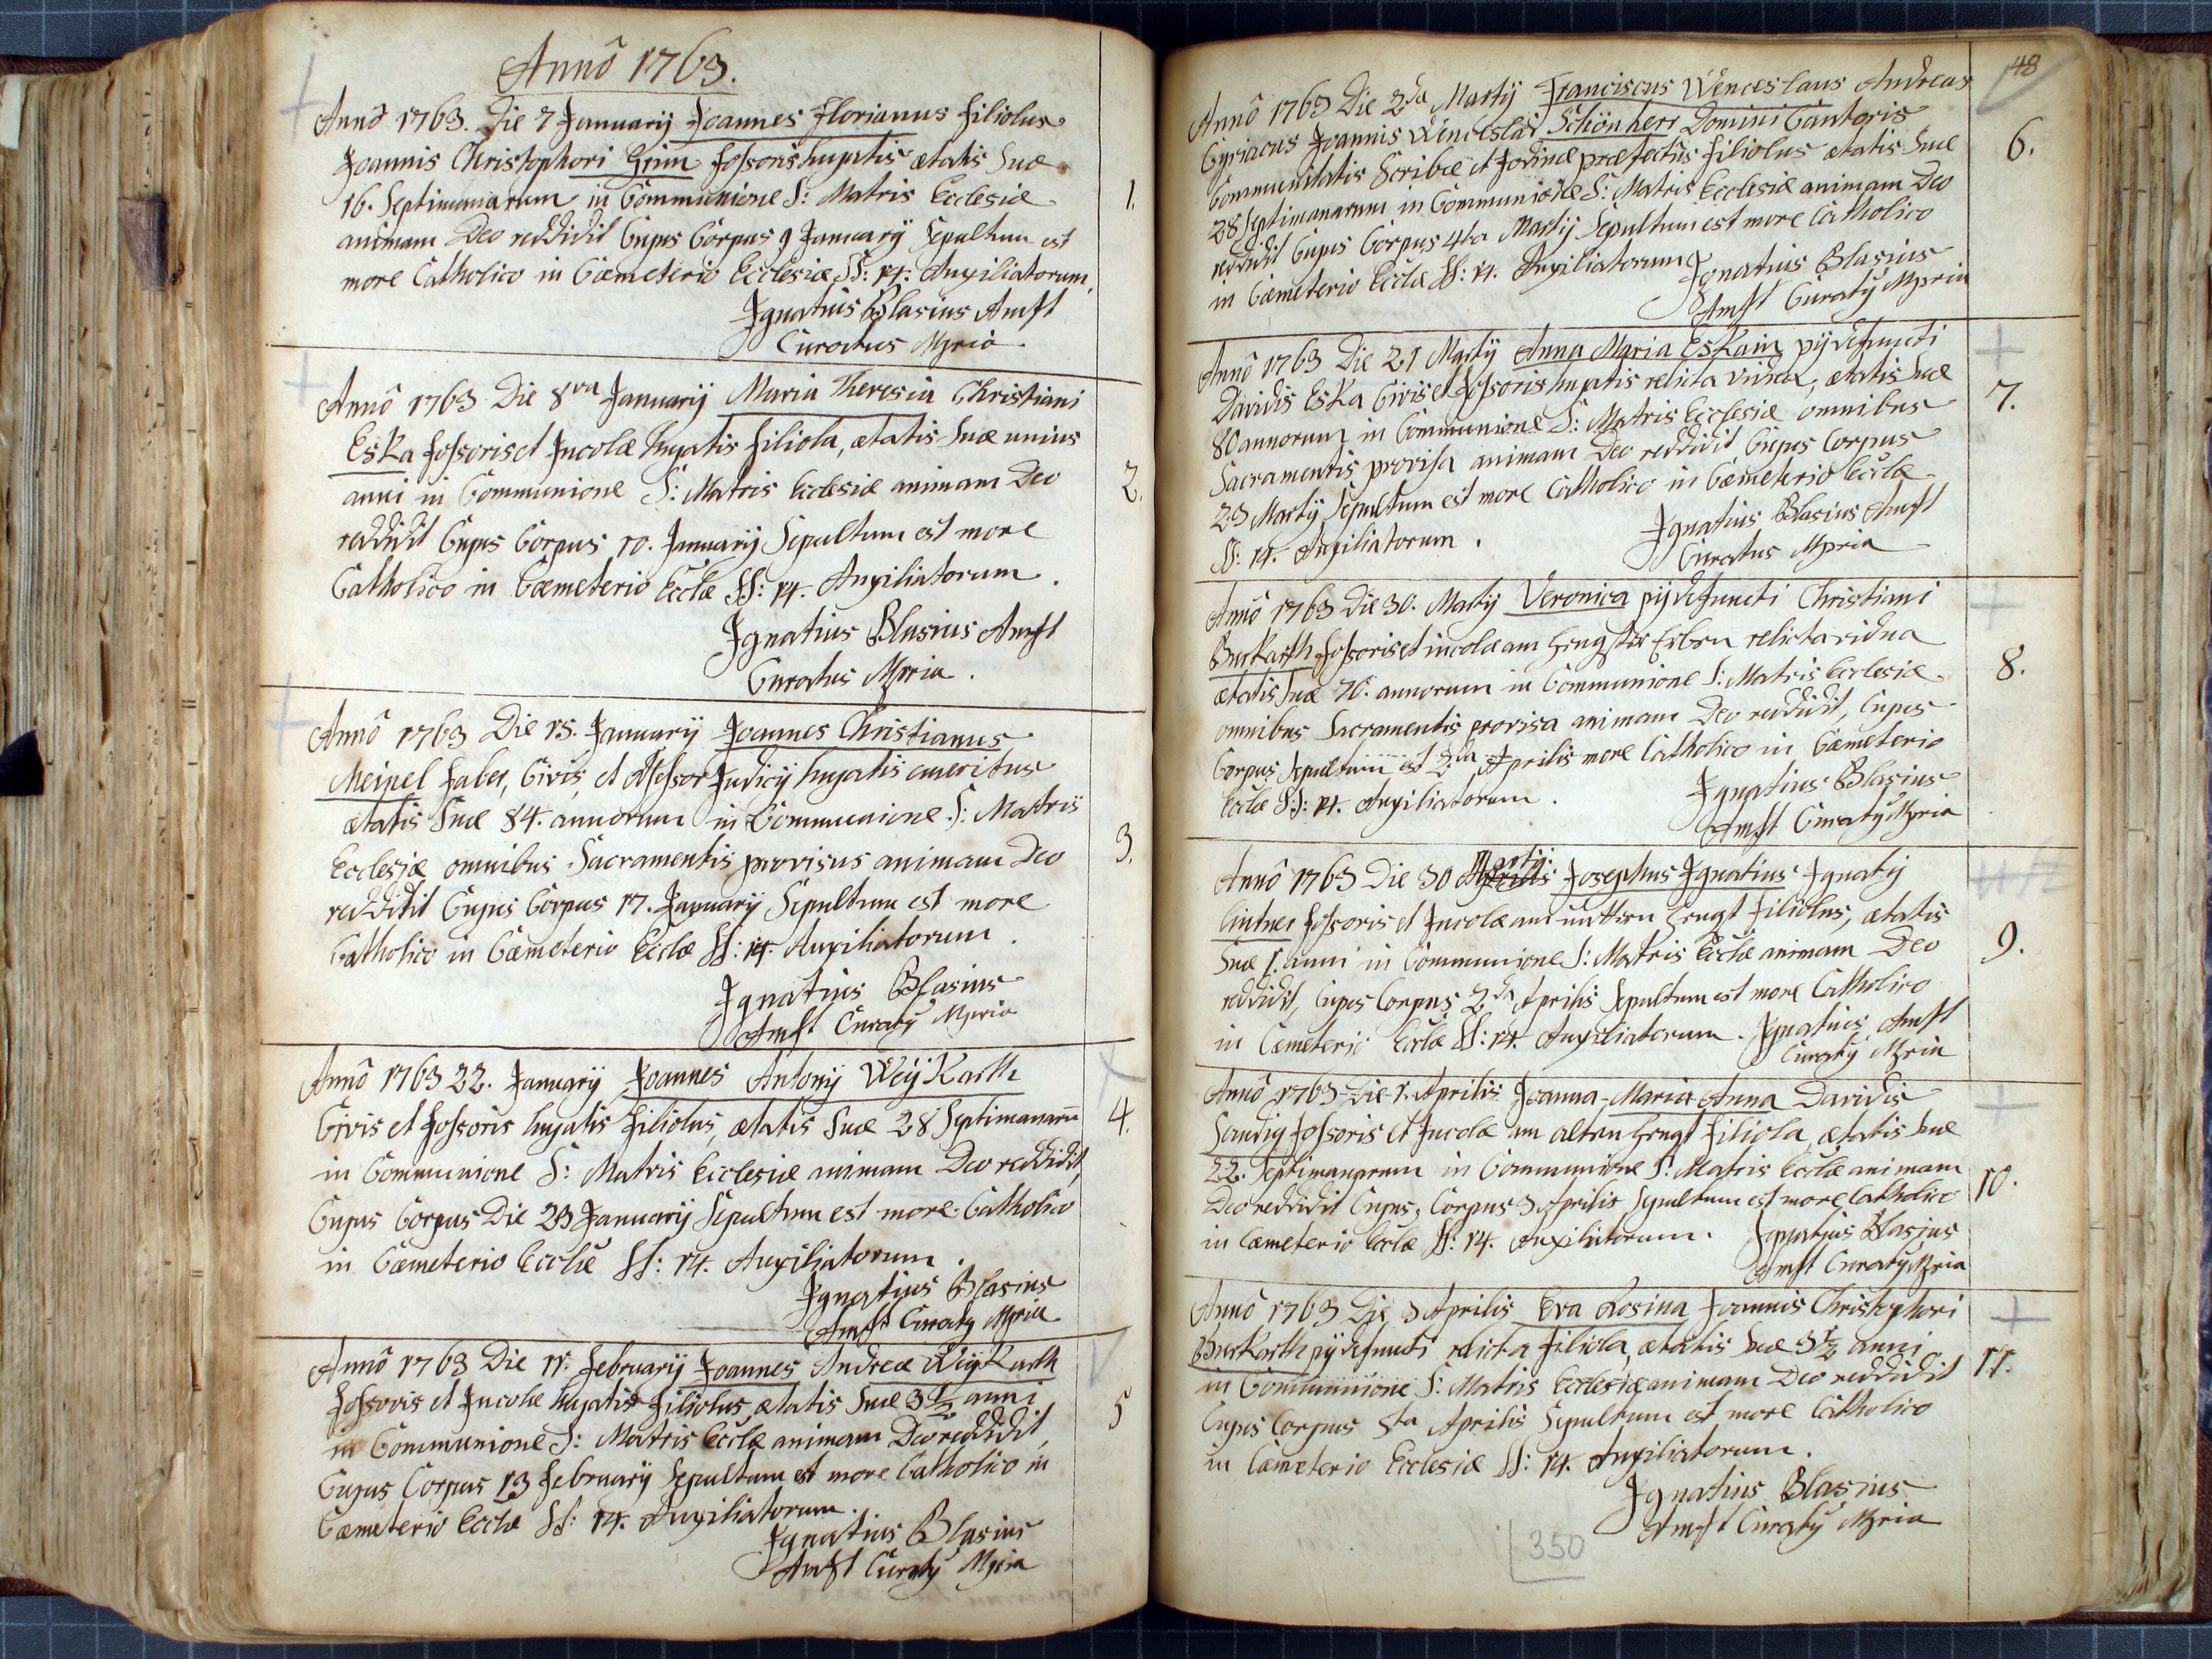 Annô 1763.
Annô 1763. Die 7 Januarij Joannes Florianus filiolus
Joannis Christophori Grim fossoris hujatis ætatis suæ
16. Septimanarum in Communione S: Matris Ecclesiæ
animam Deo reddidit Cujus Corpus 9 January Sepultum est
more Catholico in Cæmeterio Ecclesiæ SS: 14. Auxiliatorum.
Ignatius Blasius Amft
Curatus Mpria
1.
Annô 1763 Die 8va Januarij Maria Theresia Christiani
Eska fossoris et Incolæ hujatis filiola, ætatis suæ unius
anni in Communione S: Matris Ecclesiæ animam Deo
reddidit Cujus Corpus 10. Januarij Sepultum est more
Catholico in Cæmeterio Ecclæ SS: 14. Auxiliatorum.
Ignatius Blasius Amft
Curatus Mpria.
2.
Annô 1763 Die 15. Januarij Joannes Christianus
Meinel faber, Civis, et Assessor Judicij hujatis emeritus
ætatis Suæ 84. annorum in Communione S: Matris
Ecclesiæ omnibus Sacramentis provisus animam Deo
reddidit Cujus Corpus 17. January Sepultum est more
Catholico in Cæmeterio Ecclæ SS: 14. Auxiliatorum.
Ignatius Blasius
Amft Curatq Mpria
3.
Annô 1763 22. Januarij Joannes Antonij Weÿkarth
Civis et fossoris hujatis filiolus, ætatis Suæ 28 Septimanarū
in Communione S: Matris Ecclesiæ animam Deo reddidit,
Cujus Corpus Die 23 January Sepultum est more Catholico
in Cæmeterio Ecclæ SS: 14. Auxiliatorum.
Ignatius Blasius
Amft Curatq Mpria
4.
Annô 1763 Die 11. februarij Joannes Andreæ Weÿkarth
fossoris et Incolæ hujatis filiolus, ætatis Suæ 3 1/2 anni
in Communione S: Matris Ecclæ animam Deo reddidit,
Cujus Corpus 13 february Sepultum est more Catholico in
Cæmeterio Ecclæ SS: 14. Auxiliatorum.
Ignatius Blasius
Amft Curatq Mpria
5
48
Annô 1763 Die 2da Martij Franciscus Wenceslaus Andreas
Cyriacus Joannis Wenceslai Schönherr Domini Cantoris
Communitatis Scribæ et fodinæ præfectus filiolus ætatis Suæ
28 Septimanarum in Communione S: Matris Ecclesiæ animam Deo
reddidit Cujus Corpus 4ta Martij Sepultum est more Catholico
in Cæmeterio Ecclæ SS: 14. Auxiliatorum
Ignatius Blasius
Amft Curatq Mpria
6.
Annô 1763 Die 21 Martij Anna Maria Eskain pij defuncti
Davidis Eska Civis et fossoris hujatis relicta vidua, ætatis Suæ
80 annorum in Communione S: Matris Ecclesiæ omnibus
Sacramentis provisa animam Deo reddidit Cujus Corpus
23 Martij Sepultum est more Catholico in Cæmeterio Ecclæ
SS: 14. Auxiliatorum.
Ignatius Blasius Amft
Curatus Mpria
7.
Annô 1763 Die 30. Martij Veronica pij defuncti Christiani
Burkarth fossoris et incolæ am Hengster Erben relicta vidua
ætatis Suæ 70. annorum in Communione S: Matris Ecclesiæ
omnibus Sacramentis provisa animam Deo reddidit, Cujus
Corpus Sepultum est 2da Aprilis more Catholico in Cæmeterio
Ecclæ SS: 14. Auxiliatorum.
Ignatius Blasius
Amft Curatq Mpria
8.
Annô 1763 Die 30 Aprilis Martij: Josephus Ignatius Ignatij
Lintner fossoris et Incolæ am mittern Hengst filiolus, ætatis
Suæ 1. anni in Communione S: Matris Ecclæ animam Deo
reddidit, Cujus Corpus 2da Aprilis Sepultum est more Catholico
in Cæmeterio Ecclæ SS: 14. Auxiliatorum. Ignatius Amft
Curatq Mpria
9.
Annô 1763 Die 1. Aprilis Joanna Maria Anna Davidis
Sandig fossoris et Incolæ am alten Hengst filiola ætatis Suæ
22. Septimanarum in Communione S: Matris Ecclæ animam
Deo reddidit Cujus Corpus 3 Aprilis Sepultum est more Catholico
in Cæmeterio Ecclæ SS: 14. Auxiliatorum. Ignatius Blasius
Amft Curatq Mpria
10.
Annô 1763 Die 3 Aprilis Eva Rosina Joannis Christophori
Burkarth pij defuncti relicta filiola, ætatis Suæ 3 1/2 anni
in Communione S: Matris Ecclesiæ animam Deo reddidit
Cujus Corpus 5ta Aprilis Sepultum est more Catholico
in Cæmeterio Ecclesiæ SS: 14. Auxiliatorum.
Ignatius Blasius
Amft Curatq Mpria
11.
350